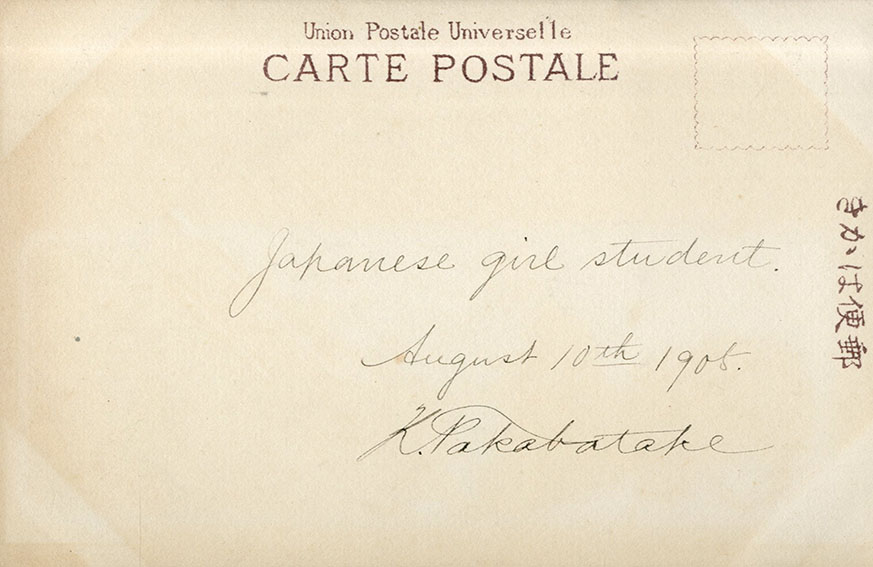 Union Postale Universelle
CARTE POSTALE
郵便はかき
Japanese girl student.
August 10th 1905.
K. Takabatake